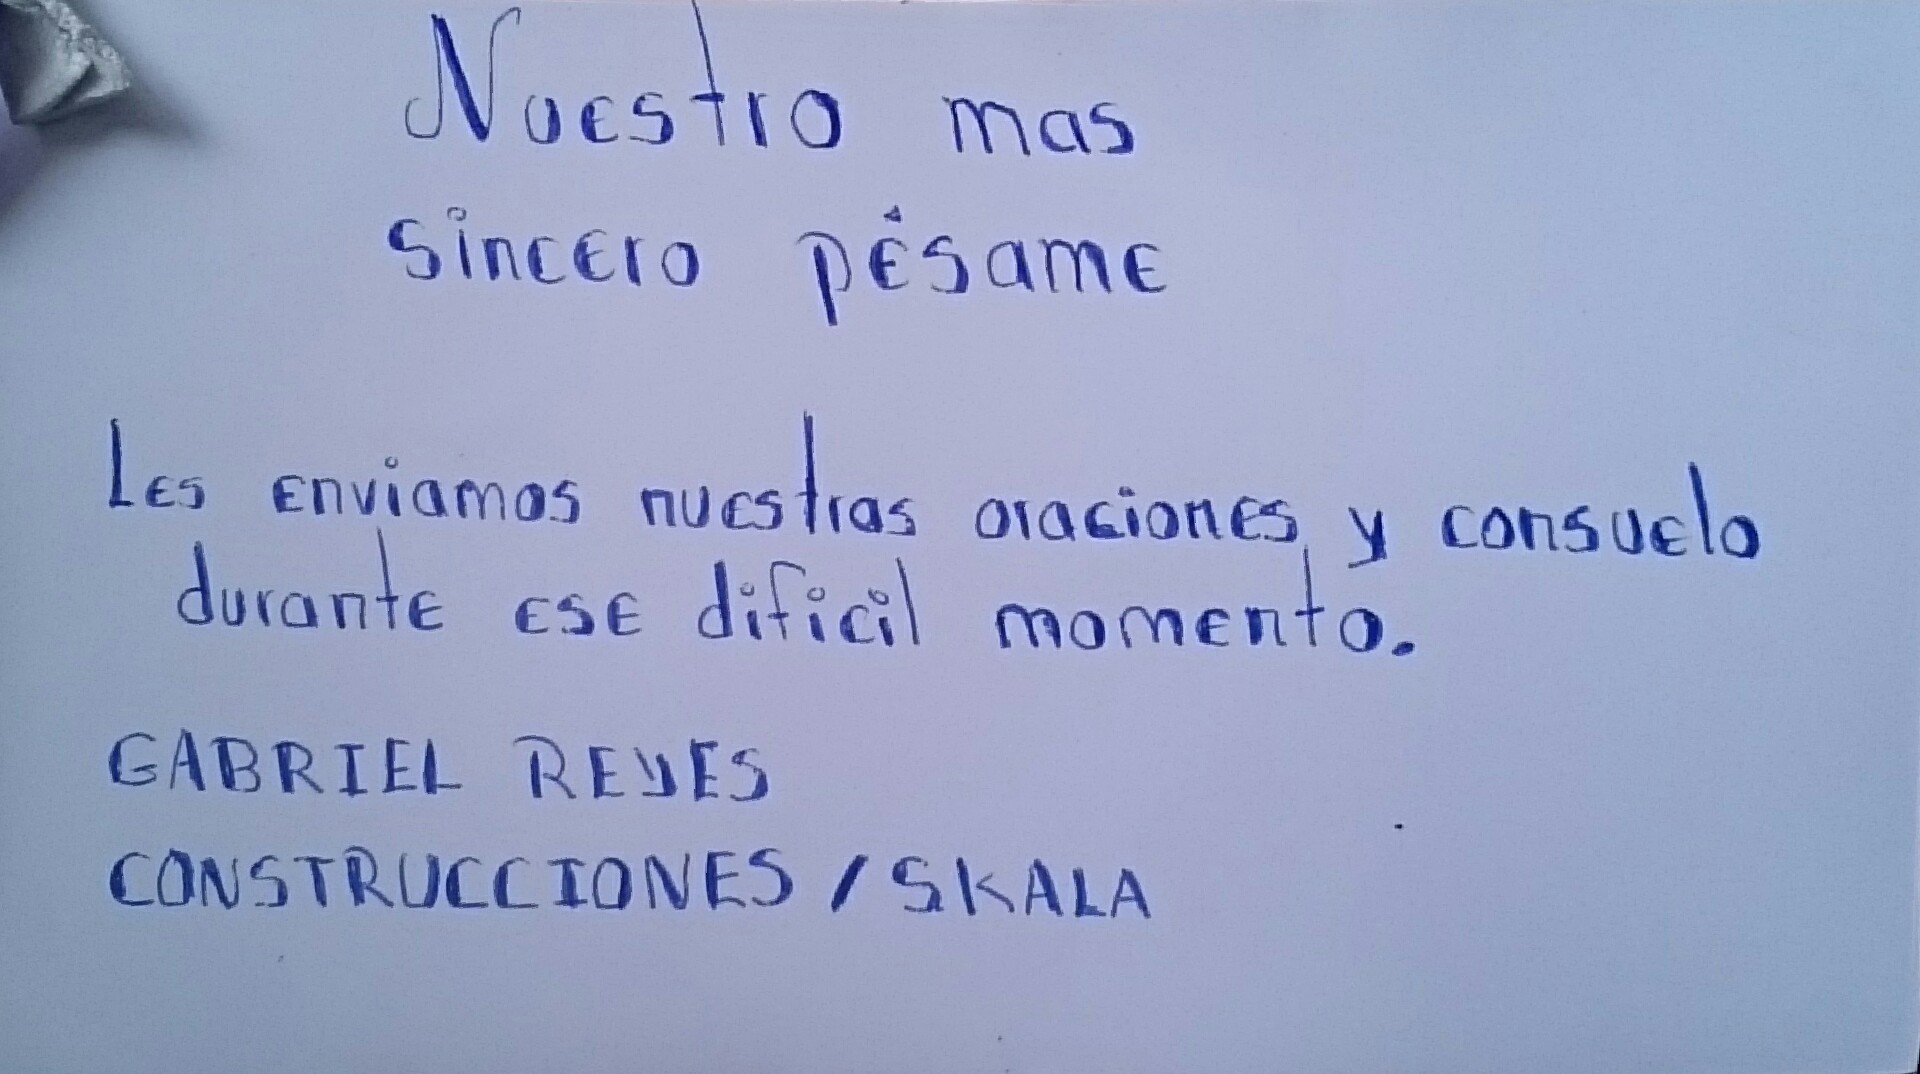 Nuestro mas
sincero pésame
Les enviamos nuestras oraciones y consuelo
durante ese dificil momento.
GABRIEL REYES
CONSTRUCCIONES / SKALA